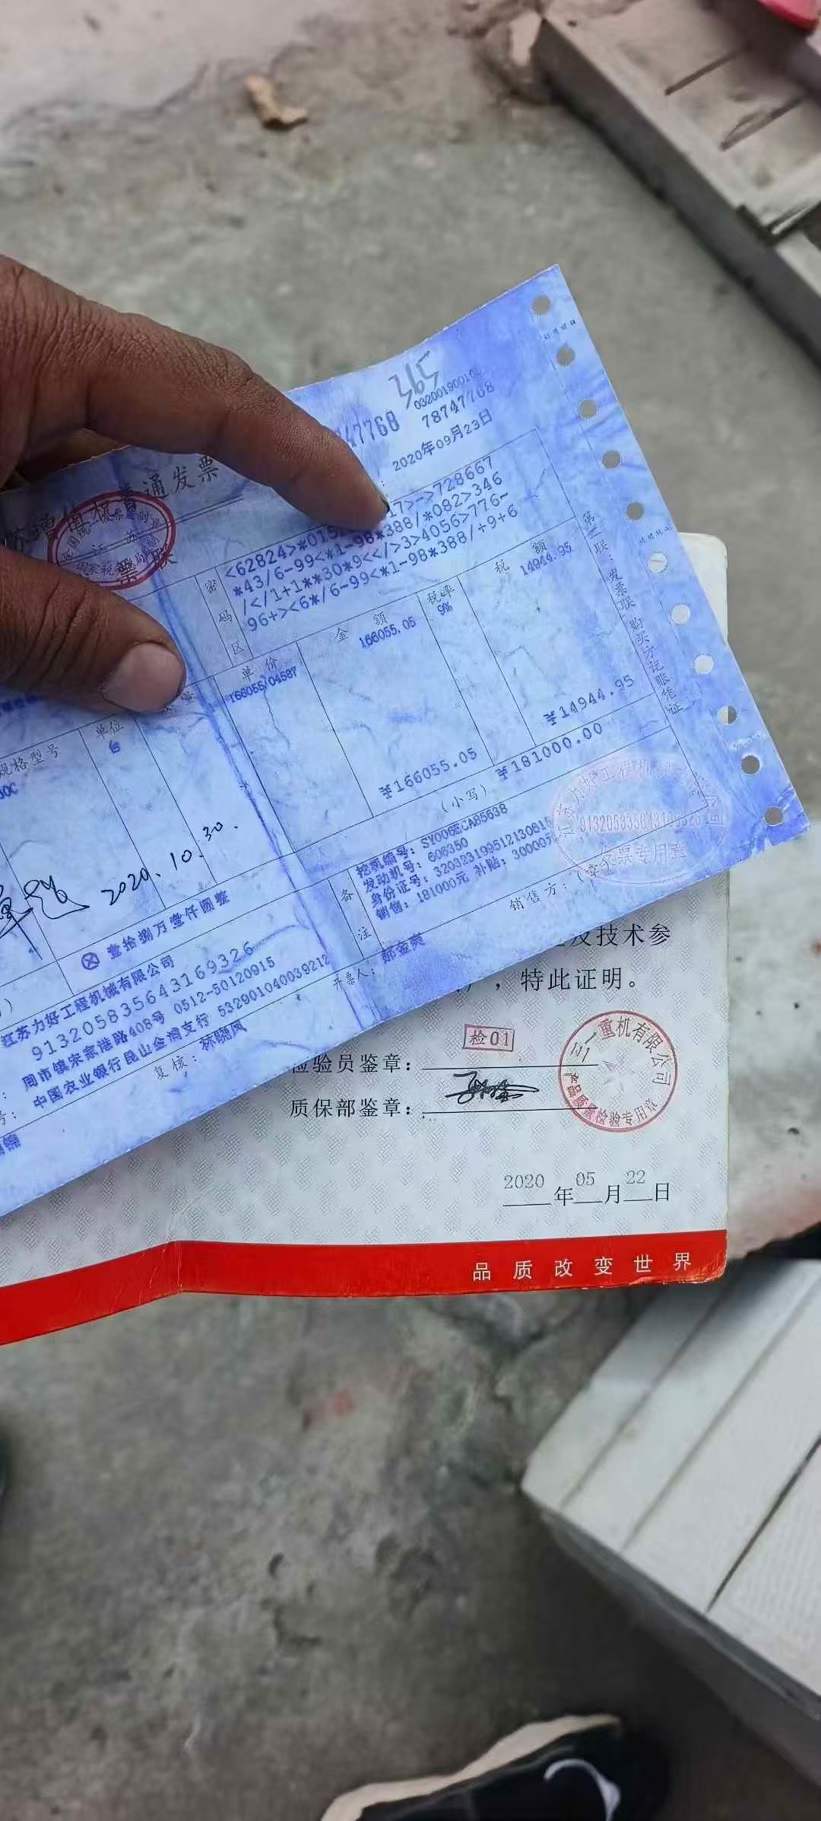 032001900104
78747768
2020年09月23日
增值税普通发票
票联
密码区
728667
*43/6-99<*1-98*388/*082>346
/</1+1**30*9<</>3>4056>776-
96+><6*/6-99<*1-98*388/+9+6
规格型号
单位
单价
金 额
税率
税 额
台
166055.04587
166055.05
9%
14944.95
¥166055.05
¥14944.95
2020.10.30.
壹拾捌万壹仟圆整
(小写)
¥181000.00
备注
挖机编号:
发动机号: 606350
身份证号:
销售: 181000元 补贴: 30000元
江苏力好工程机械有限公司
913205835643169326
周市镇宋家港路408号 0512-50120915
中国农业银行昆山金湖支行 532901040039212
复核: 林晓凤
开票人: 郝金爽
销售方:
第二联 发票联 购买方记账凭证
发票专用章
及技术参
,特此证明。
检01
检验员鉴章:
质保部鉴章:
三一重机有限公司
产品质量检验专用章
2020 年 05 月 22 日
品质改变世界